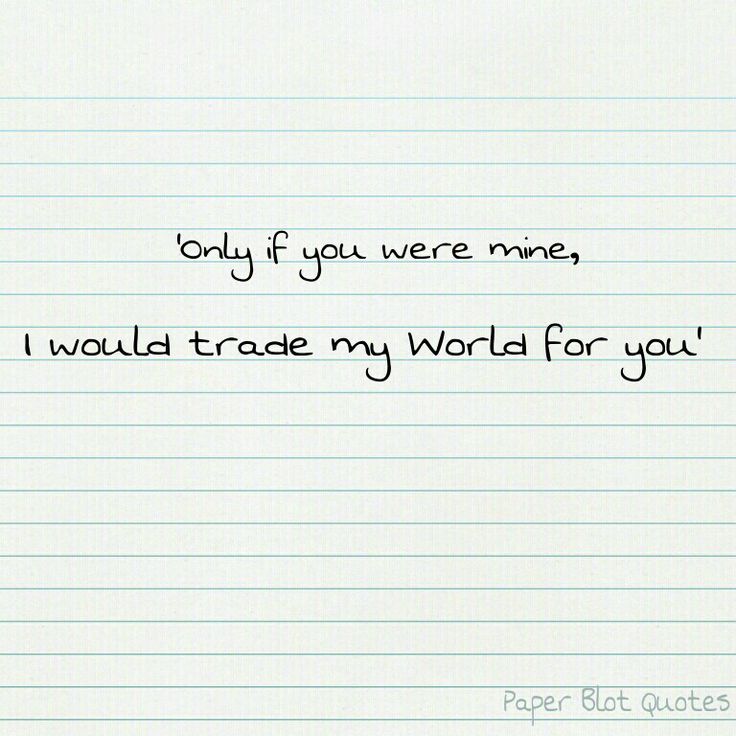 'Only if you were mine,
I would trade my World for you'
Paper Blot Quotes